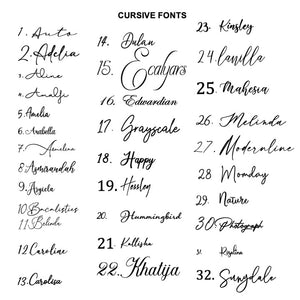 CURSIVE FONTS
1. Auto
2. Adelia
3. Aline
4. Analfi
5. Amelia
6. Arabella
7. Amelina
8. Asmirandah
9. Argiela
10. Bacalisties
11. Belinda
12. Caroline
13. Carolisa
14. Dulan
15. Ecalyars
16. Edwardian
17. Grayscale
18. Happy
19. Hossley
20. Hummingbird
21. Kallisha
22. Khatija
23. Kinsley
24. lavilla
25. Mahesia
26. Melinda
27. Modernline
28. Monday
29. Nature
30. Photograph
31.
32. Sunydale